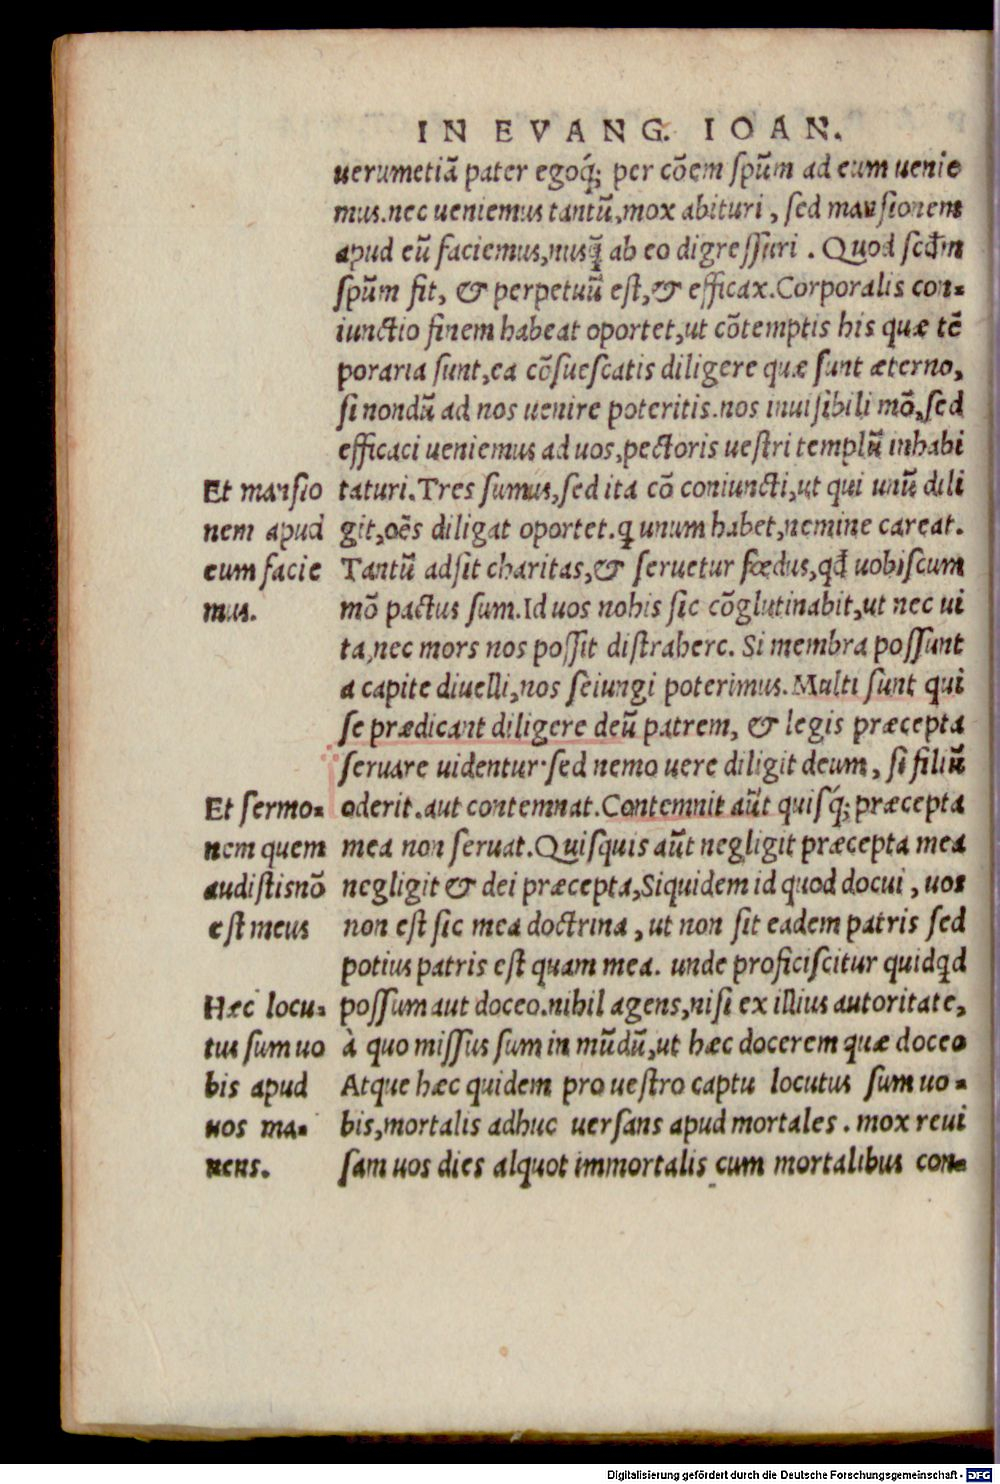 IN EVANG. IOAN.
uerumetiã pater egoq́; per cõem spũm ad eum uenie
mus.nec ueniemus tantũ,mox abituri, sed mansionem
apud eũ faciemus,nusq̃ ab eo digressuri. Quod scđm
spũm fit, & perpetuũ est,& efficax.Corporalis con-
iunctio finem habeat oportet,ut cõtemptis his quæ tẽ
poraria sunt,ea cõsuescatis diligere quæ sunt æterno,
si nondũ ad nos uenire poteritis.nos inuisibili mõ,sed
efficaci ueniemus ad uos,pectoris uestri templũ inhabi
taturi.Tres sumus,sed ita cõ coniuncti,ut qui unũ dili
git,oẽs diligat oportet.q unum habet,nemine careat.
Tantũ adsit charitas,& seruetur fœdus,qđ uobiscum
mõ pactus sum.Id uos nobis sic cõglutinabit,ut nec ui
ta,nec mors nos possit distrahere. Si membra possunt
a capite diuelli,nos seiungi poterimus.Multi sunt qui
se prædicant diligere deũ patrem, & legis præcepta
seruare uidentur·sed nemo uere diligit deum, si filiũ
oderit.aut contemnat.Contemnit aũt quisq́;præcepta
mea non seruat.Quisquis aũt negligit præcepta mea
negligit & dei præcepta,Siquidem id quod docui, uos
non est sic mea doctrina, ut non sit eadem patris sed
potius patris est quam mea. unde proficiscitur quidqd
possum aut doceo.nihil agens,nisi ex illius autoritate,
à quo missus sum in mũdũ,ut hæc docerem quæ doceo
Atque hæc quidem pro uestro captu locutus sum uo-
bis,mortalis adhuc uersans apud mortales. mox reui
sam uos dies alquot immortalis cum mortalibus con-
Et mansio
nem apud
eum facie
mus.
Et sermo-
nem quem
audistis nõ
est meus
Hæc locu-
tus sum uo
bis apud
uos ma-
nens.
Digitalisierung gefördert durch die Deutsche Forschungsgemeinschaft - DFG